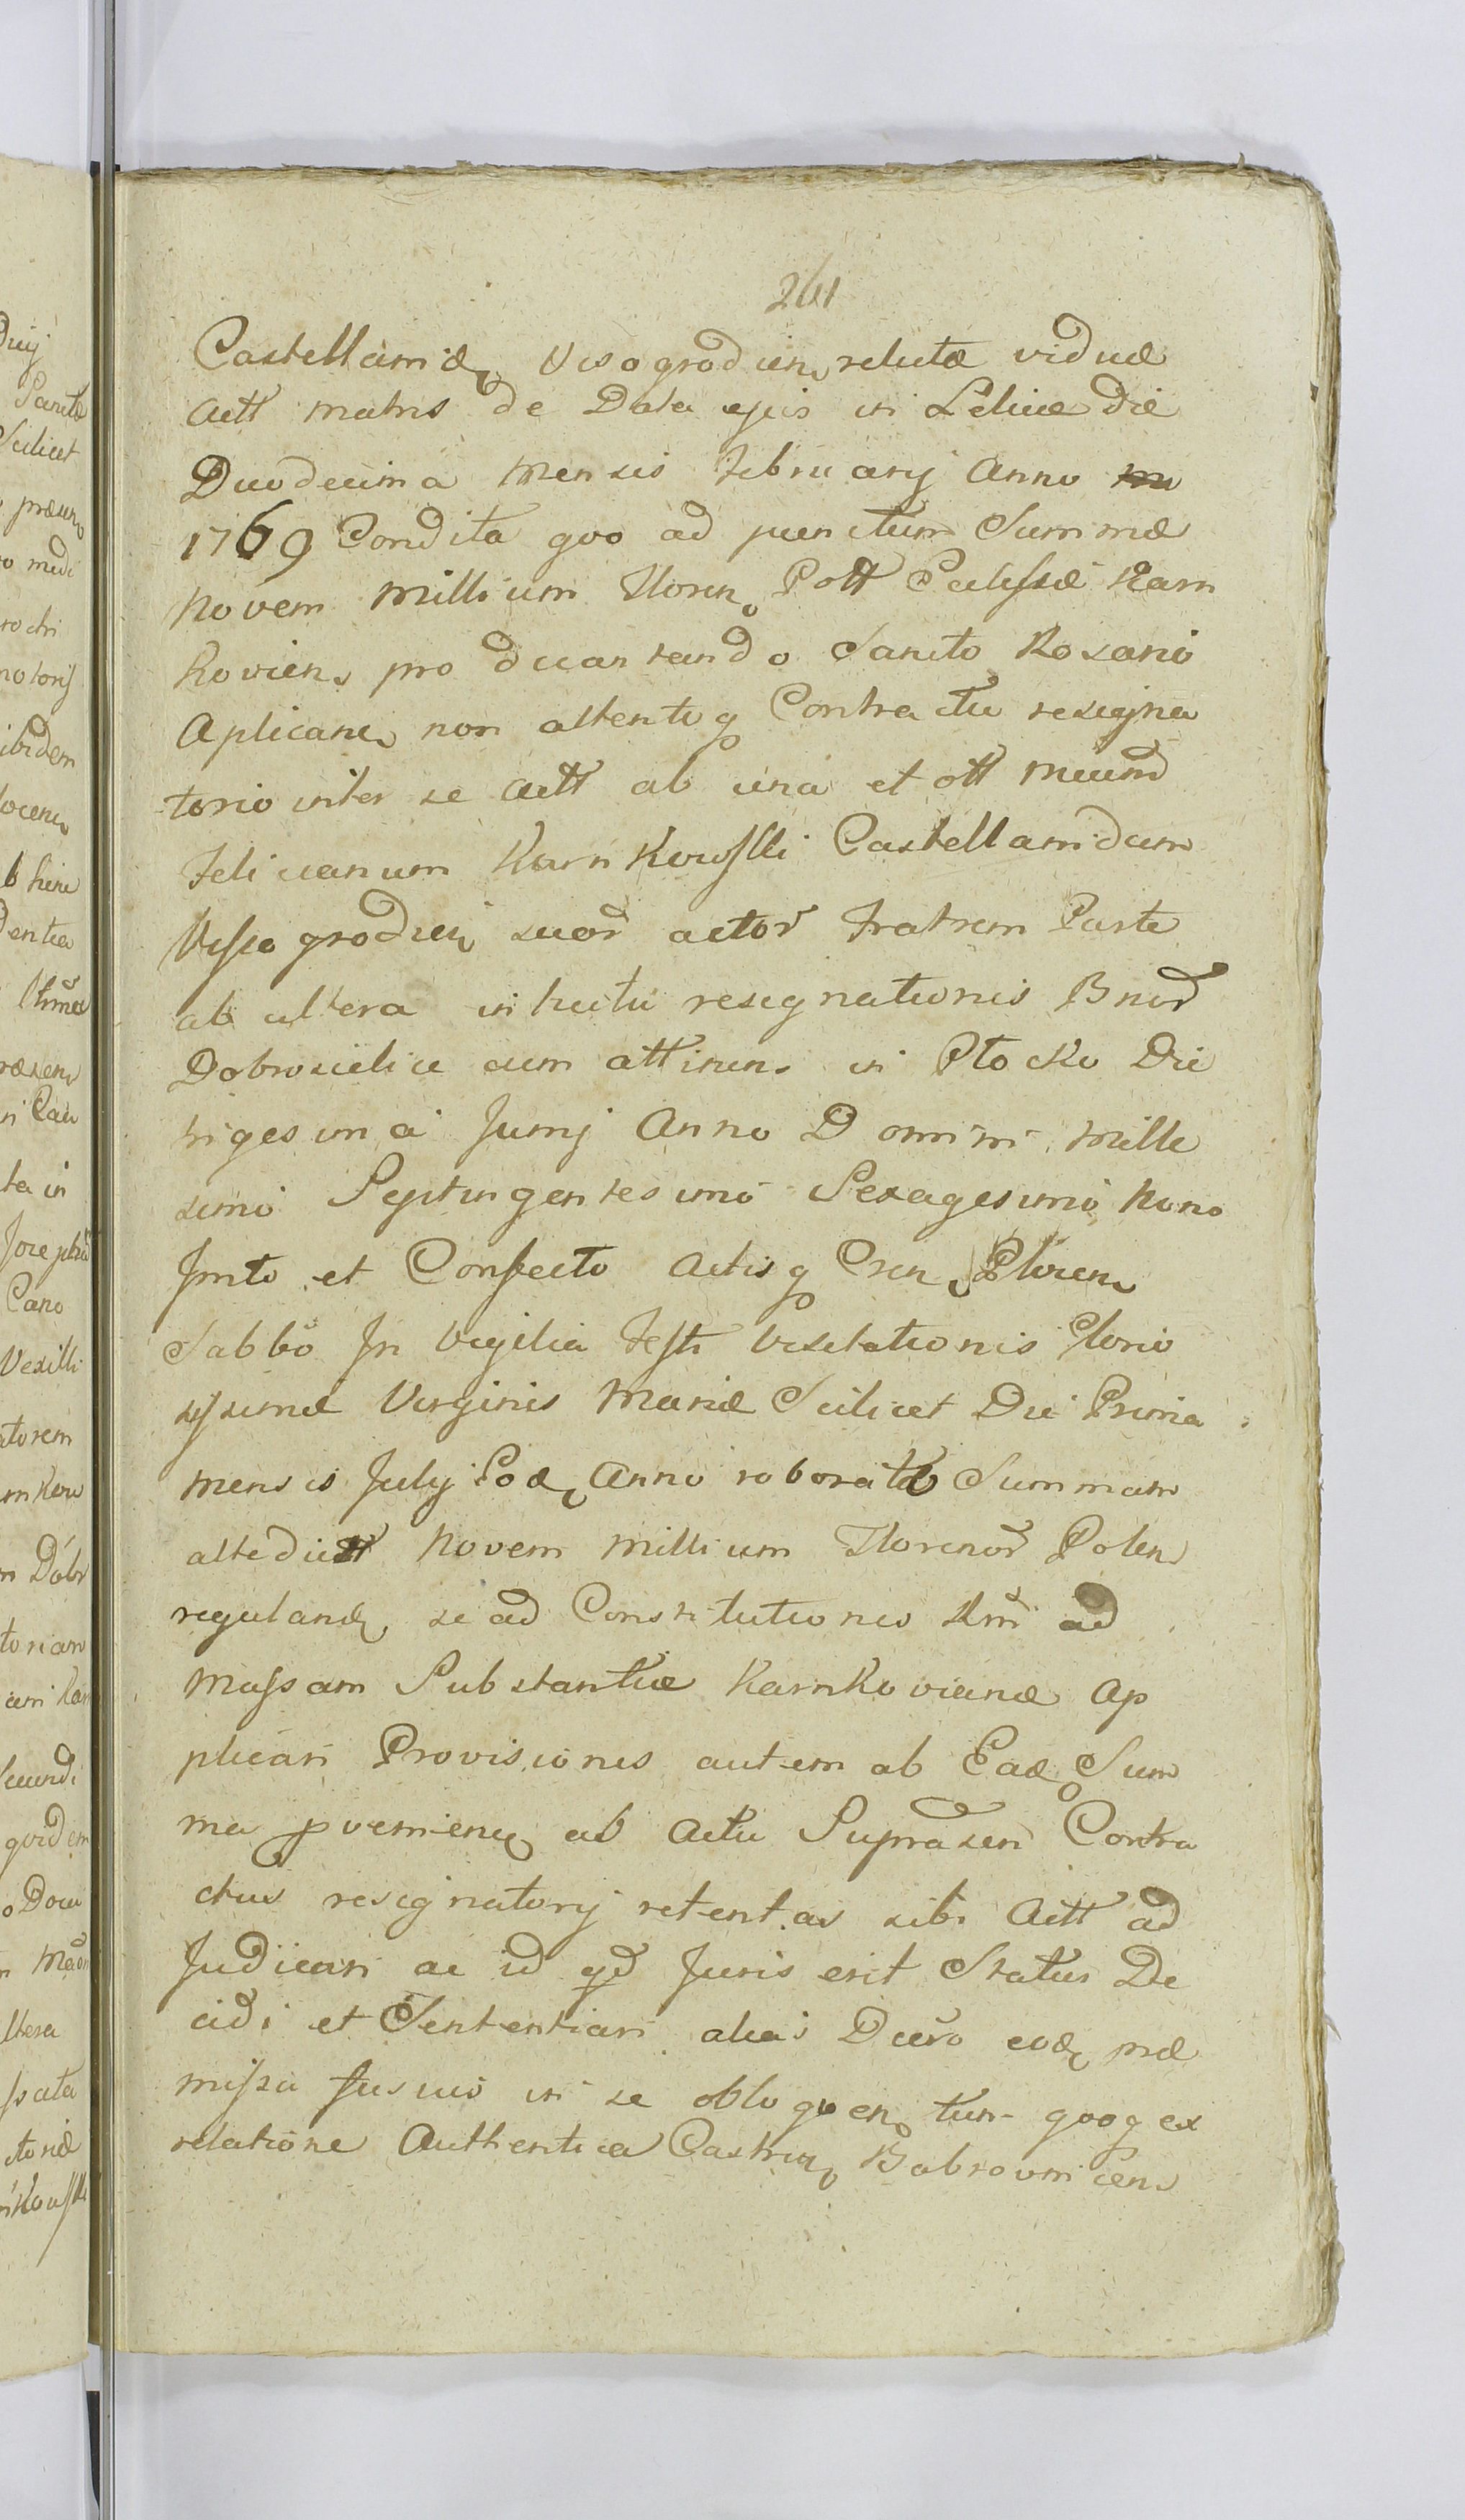 261
Castellanidæ Visogrodien relictæ viduæ
Actt matris de Data ejus in Lelice die
Duodecima Mensis February Anno
1769 Condita quo ad punctum Summæ
Novem Millium Floren Pott Eccleſiæ Karn
koviens pro decantando Sancto Rosario
Aplicanæ non attentoq Contractu resigna
torio inter se Actt ab una et ott Mcund
Felicianum Karnkowſki Castellanidam
Viſsogrodien suor actor Fratrem Parte
ab altera intuitu resignationis Bnor
Dobrosielice cum attinen in Płocko Die
trigesima Juny Anno Domini Mille
simo Septingentesimo Sexagesimo Nono
Inito et Confecto Actisq Cren Płocen
Sabbo In Vigilia Feſti Visitationis Glorio
siſsimæ Virginis Mariæ Scilicet Die Prima
Mensis July Eod Anno roborato Summam
altedictt Novem Millium Florenor Polon
reguland se ad Constitutiones Rni ad
Maſsam Substantiæ Karnkovianæ Ap
plicari Provisiones autem ab Ead Sum
ma pvenien ab Actu Suprasen Contra
ctus resignatory retentas sibi Actt ad
Judicari ac id qd Juris erit Statui De
cidi et Sententiari alias Decro eod præ
miſsa fusius in se obloquen tum quoq ex
relatione Authentica Castren Bobrownicens
Duj
Sanctæ
Scilicet
præsen
ro medi
ibidem
locen
b hinc
dentia
ræsen
ta in
Cano
Vexilli
atorem
rnkow
m Dobr
torian
quidem
o Docu
ltera
ſsata